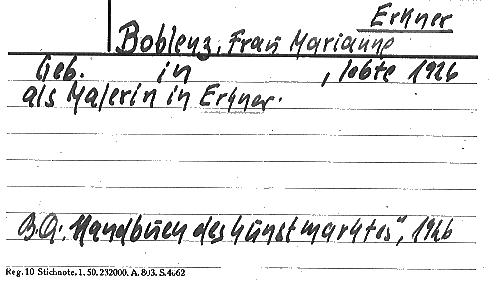 Erkner
Boblenz, Frau Marianne
Geb. in , lebte 1926
als Malerin in Erkner.
B.Q.: "Handbuch des Kunstmarktes", 1926
Reg. 10 Stichnote. 1. 50. 232000. A. 803. S. 4662